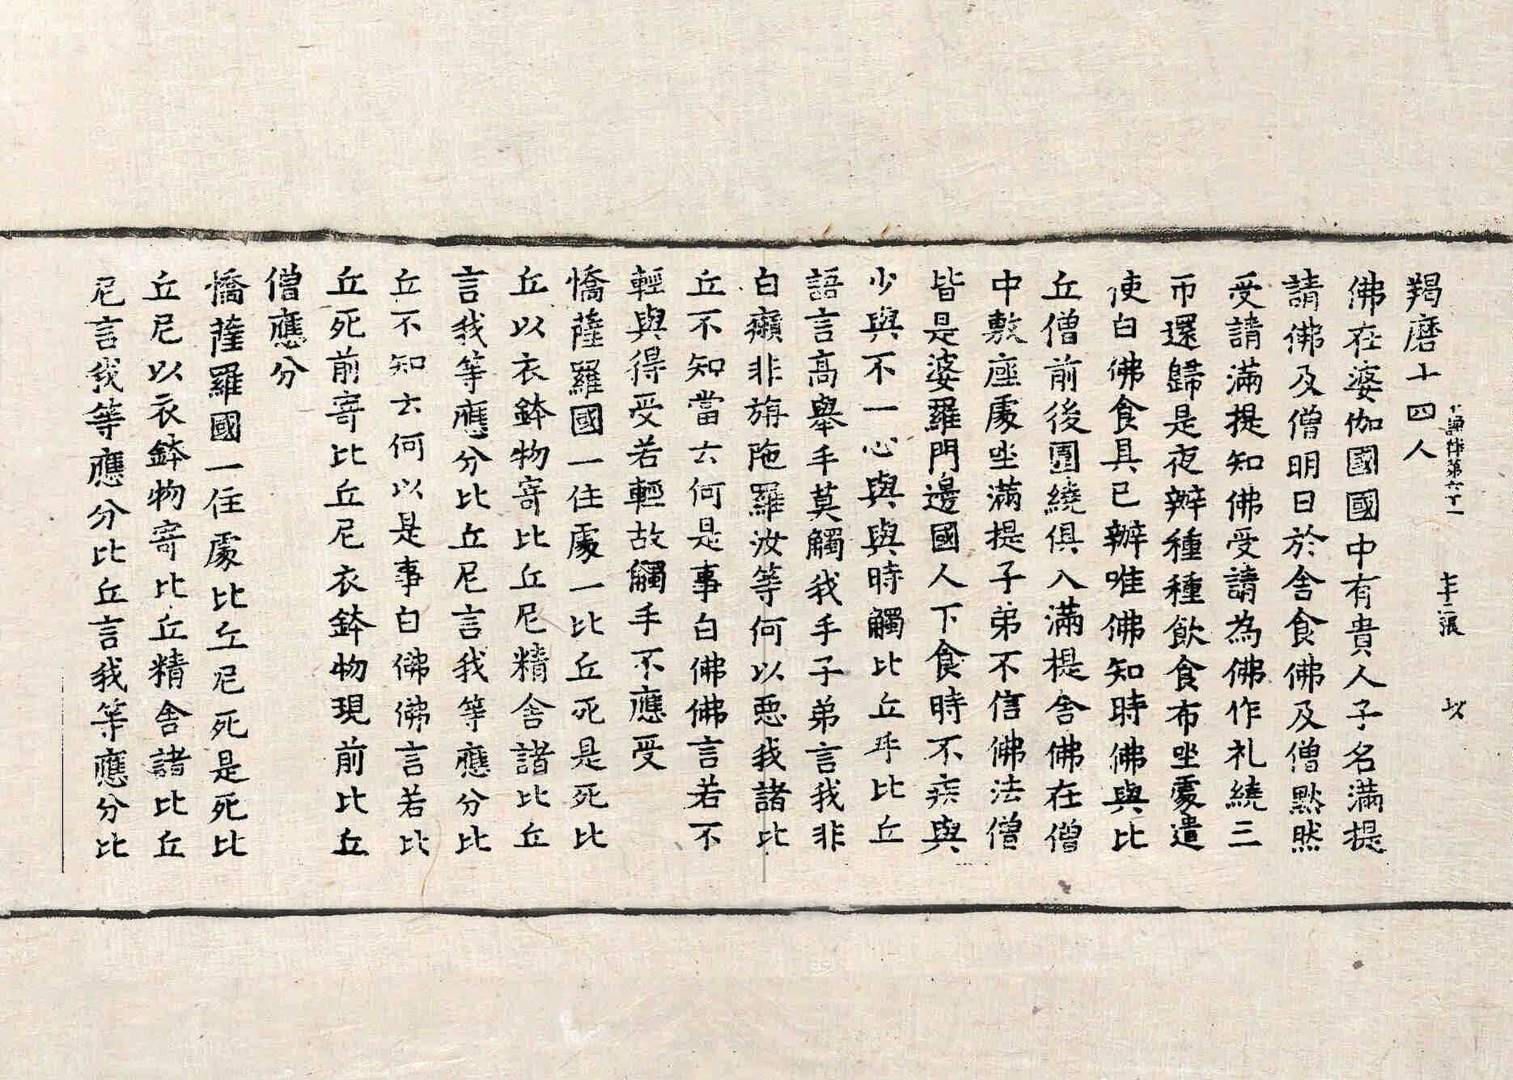 十誦律第六十一　十二張　攸
羯磨十四人
佛在婆伽國國中有貴人子名滿提
請佛及僧明日於舍食佛及僧默然
受請滿提知佛受請為佛作礼繞三
帀還歸是夜辦種種飲食布坐處遣
使白佛食具已辦唯佛知時佛與比
丘僧前後圍繞俱入滿提舍佛在僧
中敷座處坐滿提子弟不信佛法僧
皆是婆羅門邊國人下食時不疾與
少與不一心與與時觸比丘手比丘
語言高舉手莫觸我手子弟言我非
白癩非旃陁羅汝等何以惡我諸比
丘不知當云何是事白佛佛言若不
輕與得受若輕故觸手不應受
憍薩羅國一住處一比丘死是死比
丘以衣鉢物寄比丘尼精舍諸比丘
言我等應分比丘尼言我等應分比
丘不知云何以是事白佛佛言若比
丘死前寄比丘尼衣鉢物現前比丘
僧應分
憍薩羅國一住處比丘尼死是死比
丘尼以衣鉢物寄比丘精舍諸比丘
尼言我等應分比丘言我等應分比